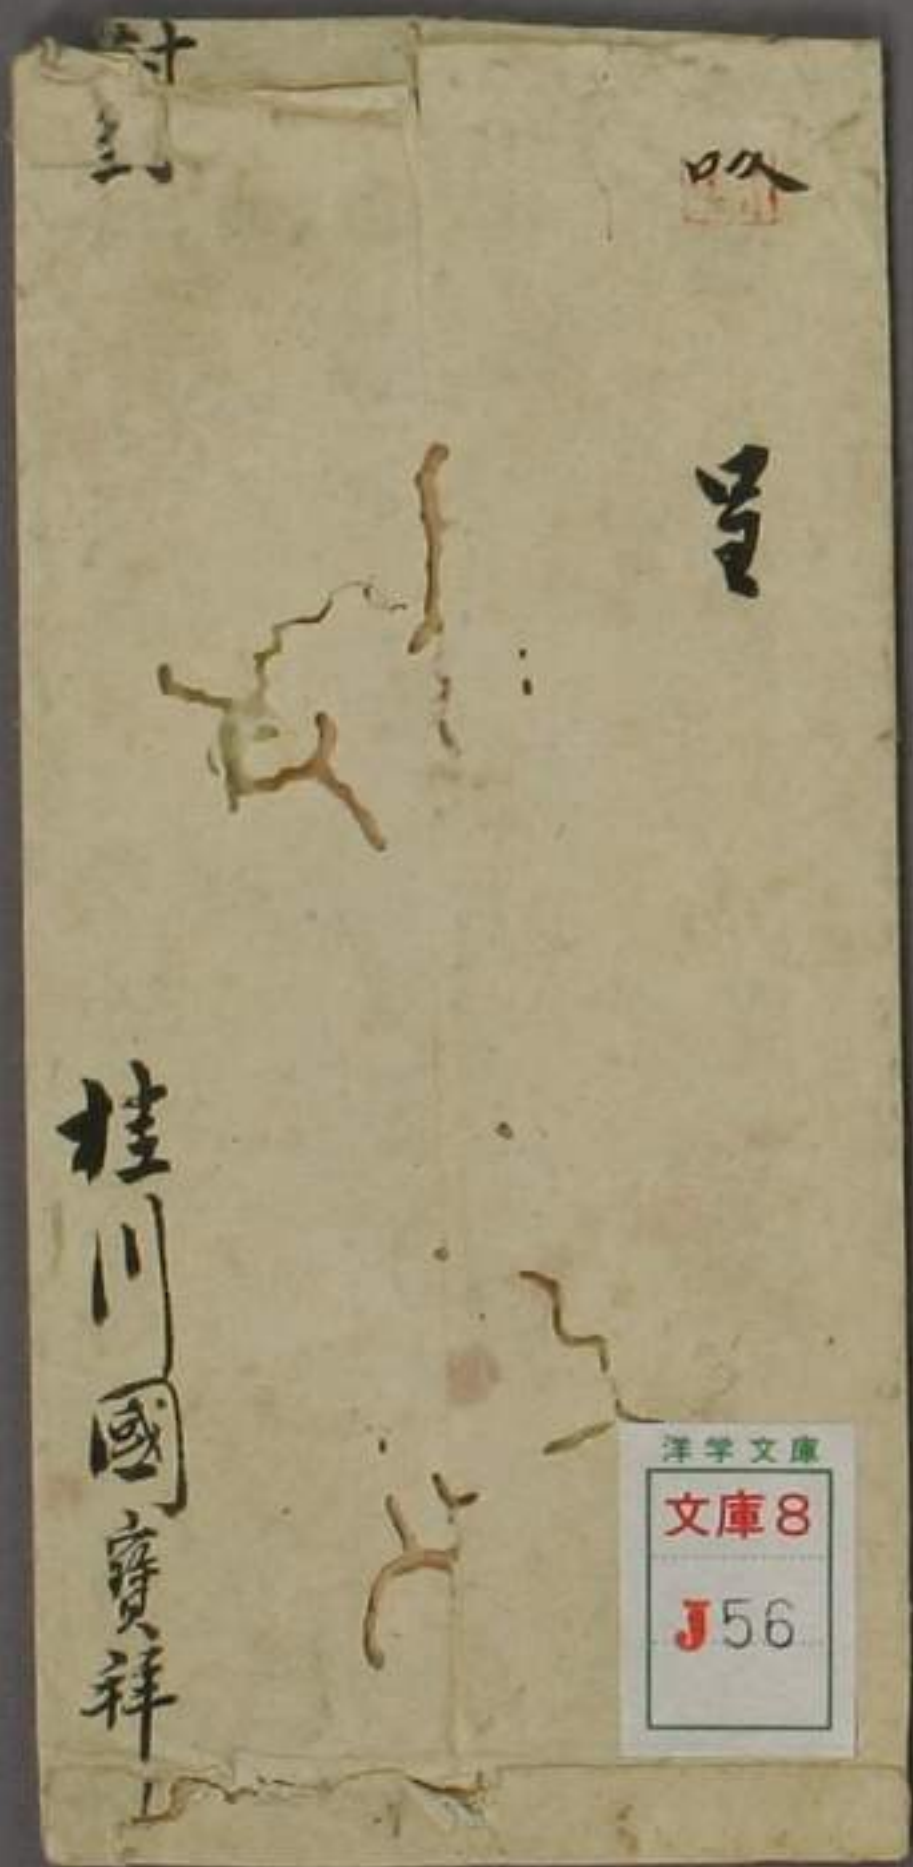 呈
桂川國寶祥上
洋学文庫
文庫8
J56